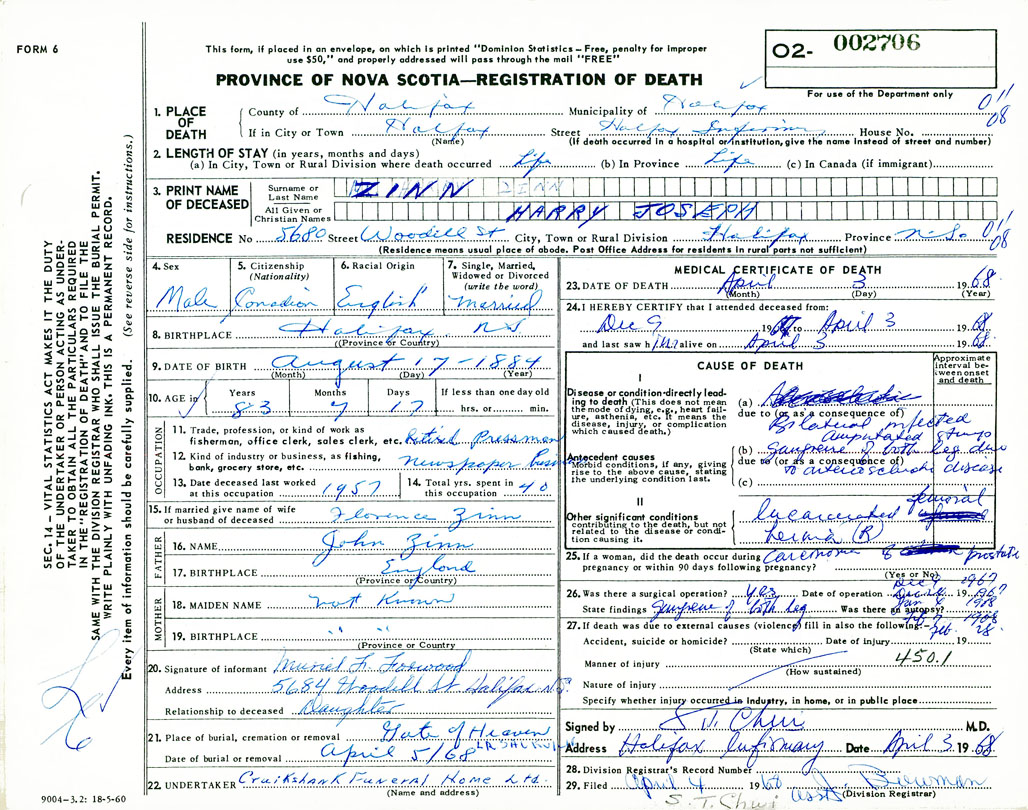 FORM 6
This form, if placed in an envelope, on which is printed "Dominion Statistics – Free, penalty for improper
use $50," and properly addressed will pass through the mail "FREE"
PROVINCE OF NOVA SCOTIA—REGISTRATION OF DEATH
O2- 002706
For use of the Department only
SEC. 14 – VITAL STATISTICS ACT MAKES IT THE DUTY
OF THE UNDERTAKER OR PERSON ACTING AS UNDER-
TAKER TO OBTAIN ALL THE PARTICULARS REQUIRED
IN THE "REGISTRATION OF DEATH" AND TO FILE THE
SAME WITH THE DIVISION REGISTRAR WHO SHALL ISSUE THE BURIAL PERMIT.
WRITE PLAINLY WITH UNFADING INK. THIS IS A PERMANENT RECORD.
Every item of information should be carefully supplied. (See reverse side for instructions.)
1. PLACE OF DEATH
County of Halifax Municipality of Halifax 011 08
If in City or Town Halifax Street Halifax Infirmary House No.
(Name) (If death occurred in a hospital or institution, give the name instead of street and number)
2. LENGTH OF STAY (in years, months and days)
(a) In City, Town or Rural Division where death occurred Life (b) In Province Life (c) In Canada (if immigrant)
3. PRINT NAME OF DECEASED
Surname or Last Name ZINN ZINN
All Given or Christian Names HARRY JOSEPH
RESIDENCE No 5680 Street Woodill St City, Town or Rural Division Halifax Province N.S. 011 08
(Residence means usual place of abode. Post Office Address for residents in rural parts not sufficient)
4. Sex Male
5. Citizenship (Nationality) Canadian
6. Racial Origin English
7. Single, Married, Widowed or Divorced (write the word) Married
8. BIRTHPLACE Halifax NS
(Province or Country)
9. DATE OF BIRTH August 17 - 1884
(Month) (Day) (Year)
10. AGE Years Months Days If less than one day old
83 7 17 hrs. or min.
OCCUPATION
11. Trade, profession, or kind of work as
fisherman, office clerk, sales clerk, etc. Retired Pressman
12. Kind of industry or business, as fishing,
bank, grocery store, etc. newspaper business
13. Date deceased last worked
at this occupation 1957
14. Total yrs. spent in
this occupation 40
15. If married give name of wife
or husband of deceased Florence Zinn
FATHER
16. NAME John Zinn
17. BIRTHPLACE England
(Province or Country)
MOTHER
18. MAIDEN NAME not Known
19. BIRTHPLACE " "
(Province or Country)
20. Signature of informant Muriel F.
Address 5684 Woodill St Halifax N.S.
Relationship to deceased Daughter
21. Place of burial, cremation or removal Gate of Heaven
Date of burial or removal April 5/68
22. UNDERTAKER Cruikshank Funeral Home Ltd.
(Name and address)
9004–3.2: 18-5-60
MEDICAL CERTIFICATE OF DEATH
23. DATE OF DEATH April 3 1968
(Month) (Day) (Year)
24. I HEREBY CERTIFY that I attended deceased from:
Dec 9 1967 to April 3 1968
and last saw him alive on April 3 1968
CAUSE OF DEATH
Approximate interval between onset and death
I
Disease or condition directly leading to death (This does not mean the mode of dying, e.g., heart failure, asthenia, etc. It means the disease, injury, or complication which caused death.)
(a)
due to (or as a consequence of)
Bilateral infected
amputated stumps
Antecedent causes
Morbid conditions, if any, giving rise to the above cause, stating the underlying condition last.
(b) Gangrene of both leg due
due to (or as a consequence of)
to arteriosclerotic disease
(c)
II
Other significant conditions
contributing to the death, but not related to the disease or condition causing it.
Incarcerated femoral
hernia (R)
Carcinoma of prostate
25. If a woman, did the death occur during
pregnancy or within 90 days following pregnancy?
(Yes or No)
26. Was there a surgical operation? Yes Date of operation Dec 9 1967
State findings Gangrene of both leg Was there an autopsy?
27. If death was due to external causes (violence) fill in also the following:–
Accident, suicide or homicide? Date of injury 19
(State which)
Manner of injury 450.1
(How sustained)
Nature of injury
Specify whether injury occurred in industry, in home, or in public place
Signed by S.T. Chui M.D.
Address Halifax Infirmary Date April 3 1968
28. Division Registrar's Record Number
29. Filed April 4 1968
S. T. Chui asst. (Division Registrar)